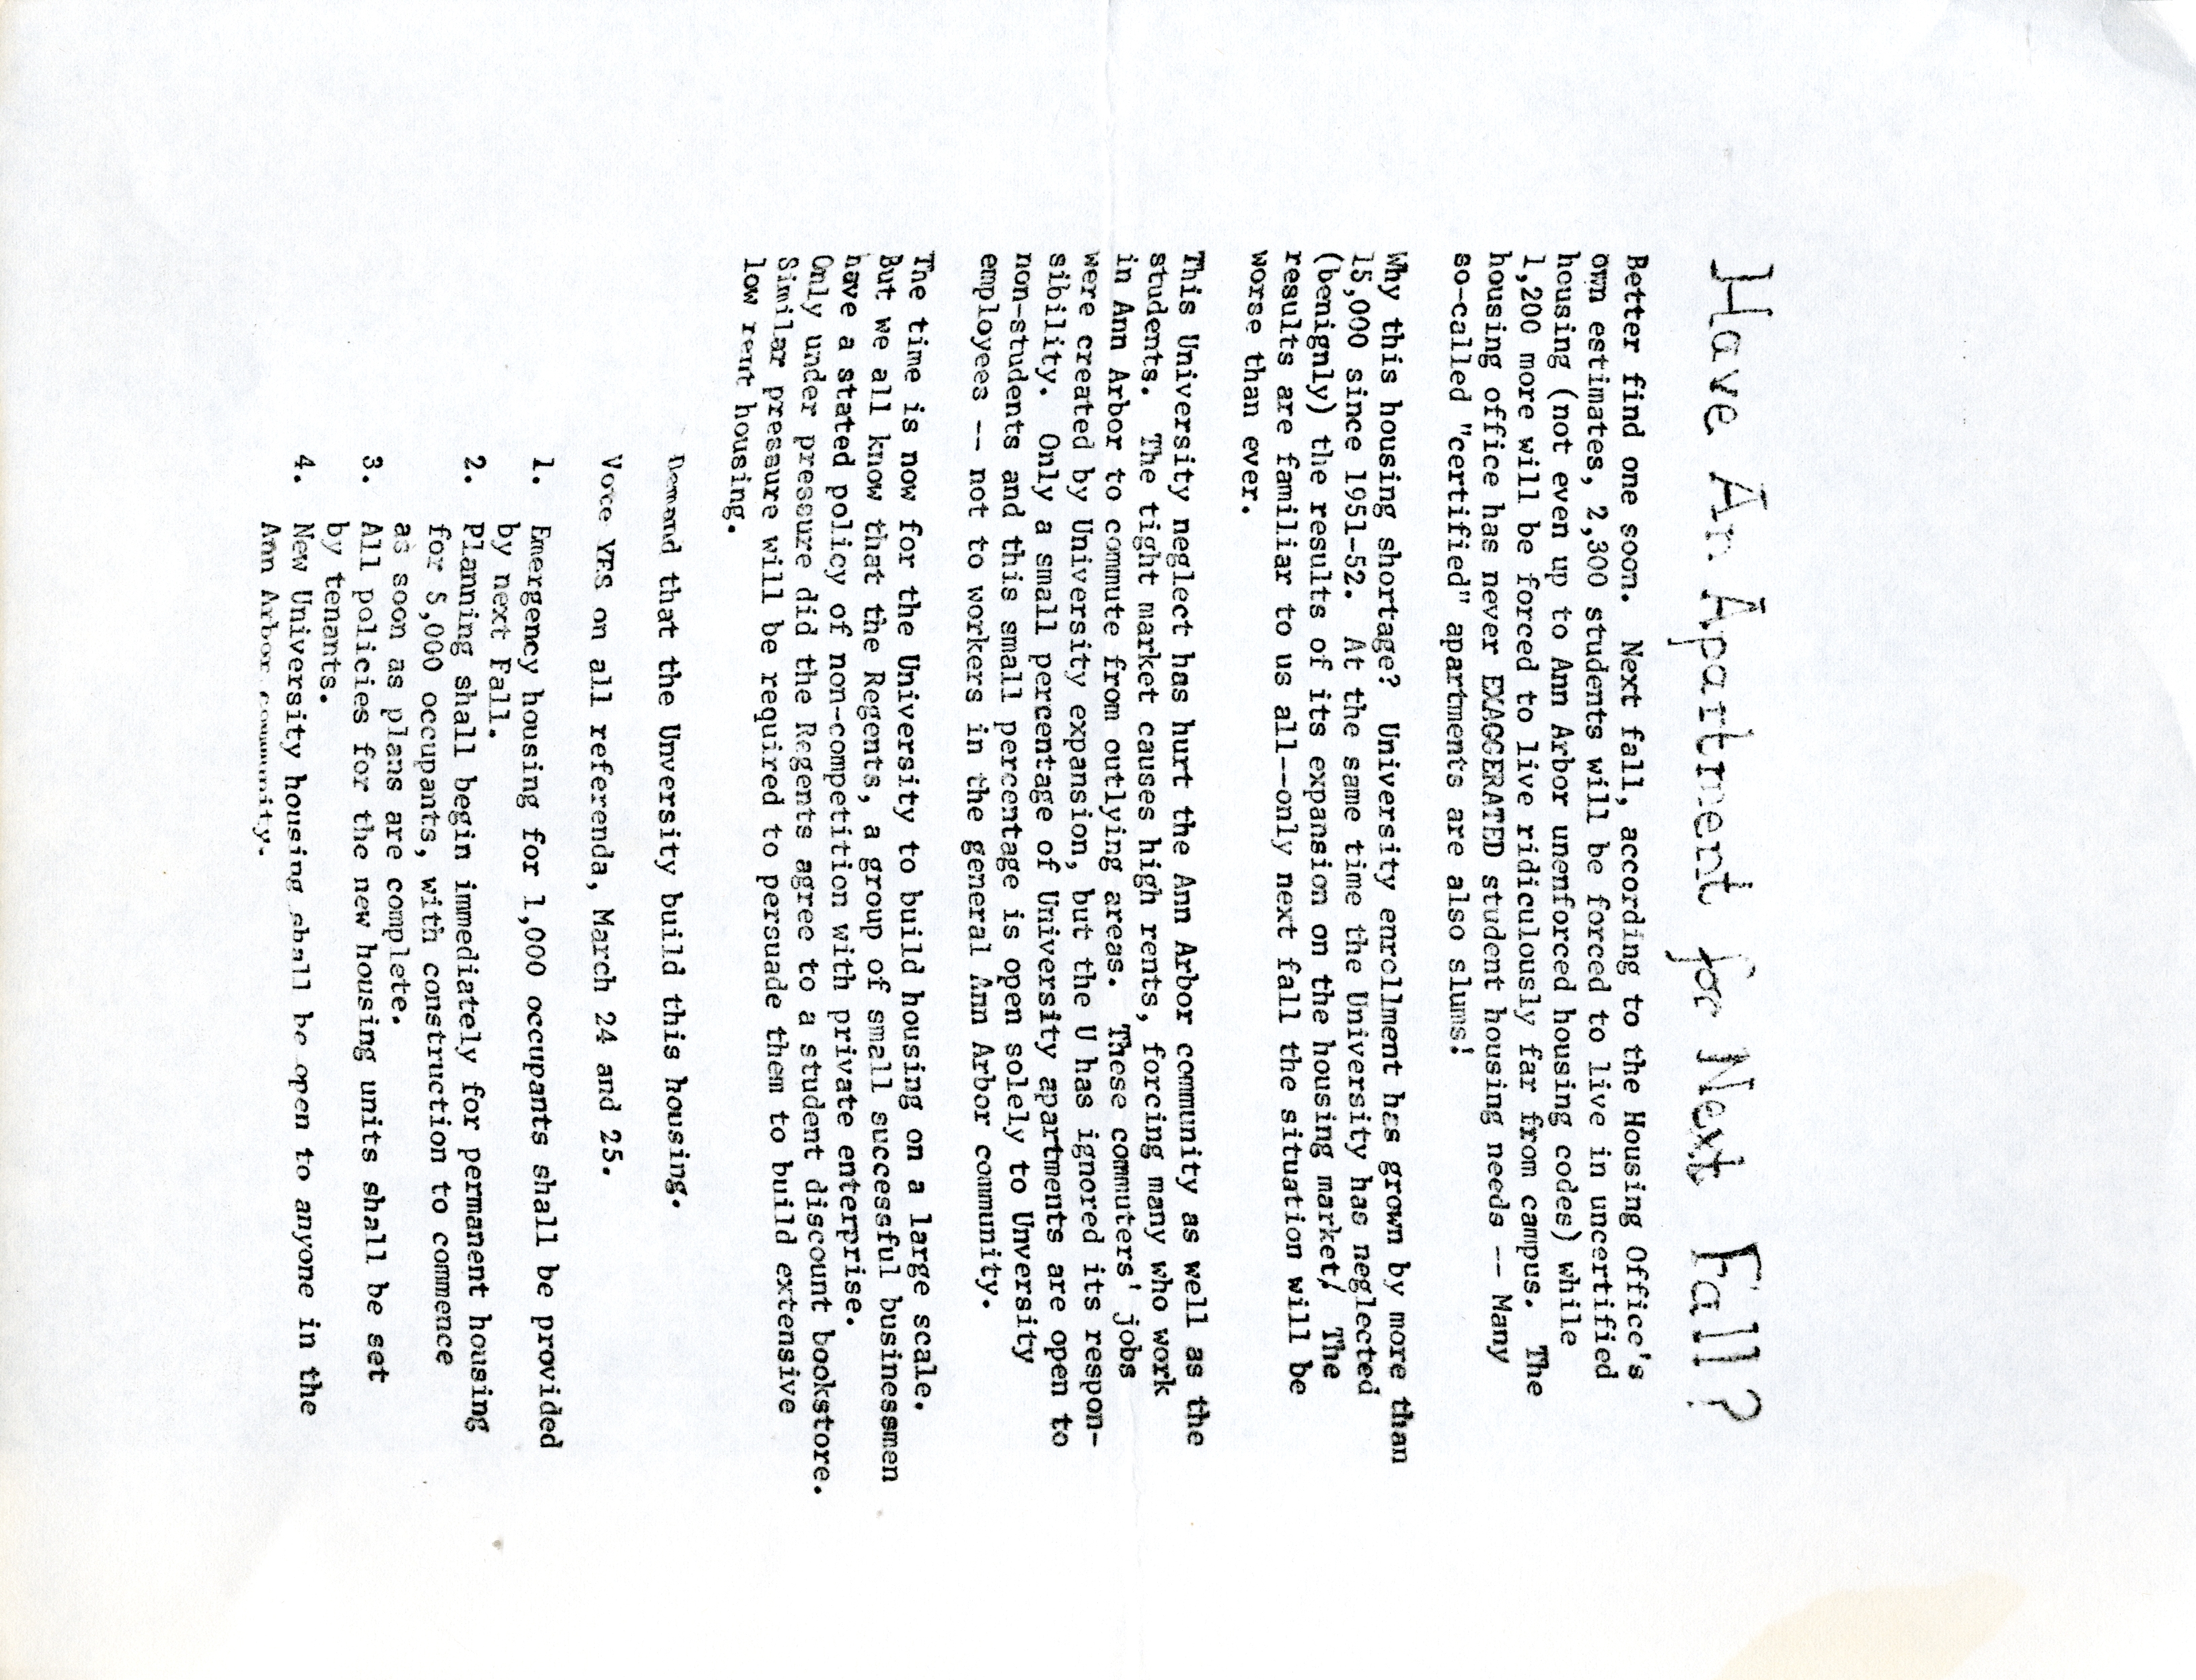 Have An Apartment for Next Fall?
Better find one soon. Next fall, according to the Housing Office's
own estimates, 2,300 students will be forced to live in uncertified
housing (not even up to Ann Arbor unenforced housing codes) while
1,200 more will be forced to live ridiculously far from campus. The
housing office has never EXAGGERATED student housing needs -- Many
so-called "certified" apartments are also slums!
Why this housing shortage? University enrollment has grown by more than
15,000 since 1951-52. At the same time the University has neglected
(benignly) the results of its expansion on the housing market/ The
results are familiar to us all--only next fall the situation will be
worse than ever.
This University neglect has hurt the Ann Arbor community as well as the
students. The tight market causes high rents, forcing many who work
in Ann Arbor to commute from outlying areas. These commuters' jobs
were created by University expansion, but the U has ignored its respon-
sibility. Only a small percentage of University apartments are open to
non-students and this small percentage is open solely to Unversity
employees -- not to workers in the general Ann Arbor community.
The time is now for the University to build housing on a large scale.
But we all know that the Regents, a group of small successful businessmen
have a stated policy of non-competition with private enterprise.
Only under pressure did the Regents agree to a student discount bookstore.
Similar pressure will be required to persuade them to build extensive
low rent housing.
Demand that the Unversity build this housing.
Vote YES on all referenda, March 24 and 25.
1. Emergency housing for 1,000 occupants shall be provided
by next Fall.
2. Planning shall begin immediately for permanent housing
for 5,000 occupants, with construction to commence
as soon as plans are complete.
3. All policies for the new housing units shall be set
by tenants.
4. New University housing shall be open to anyone in the
Ann Arbor community.